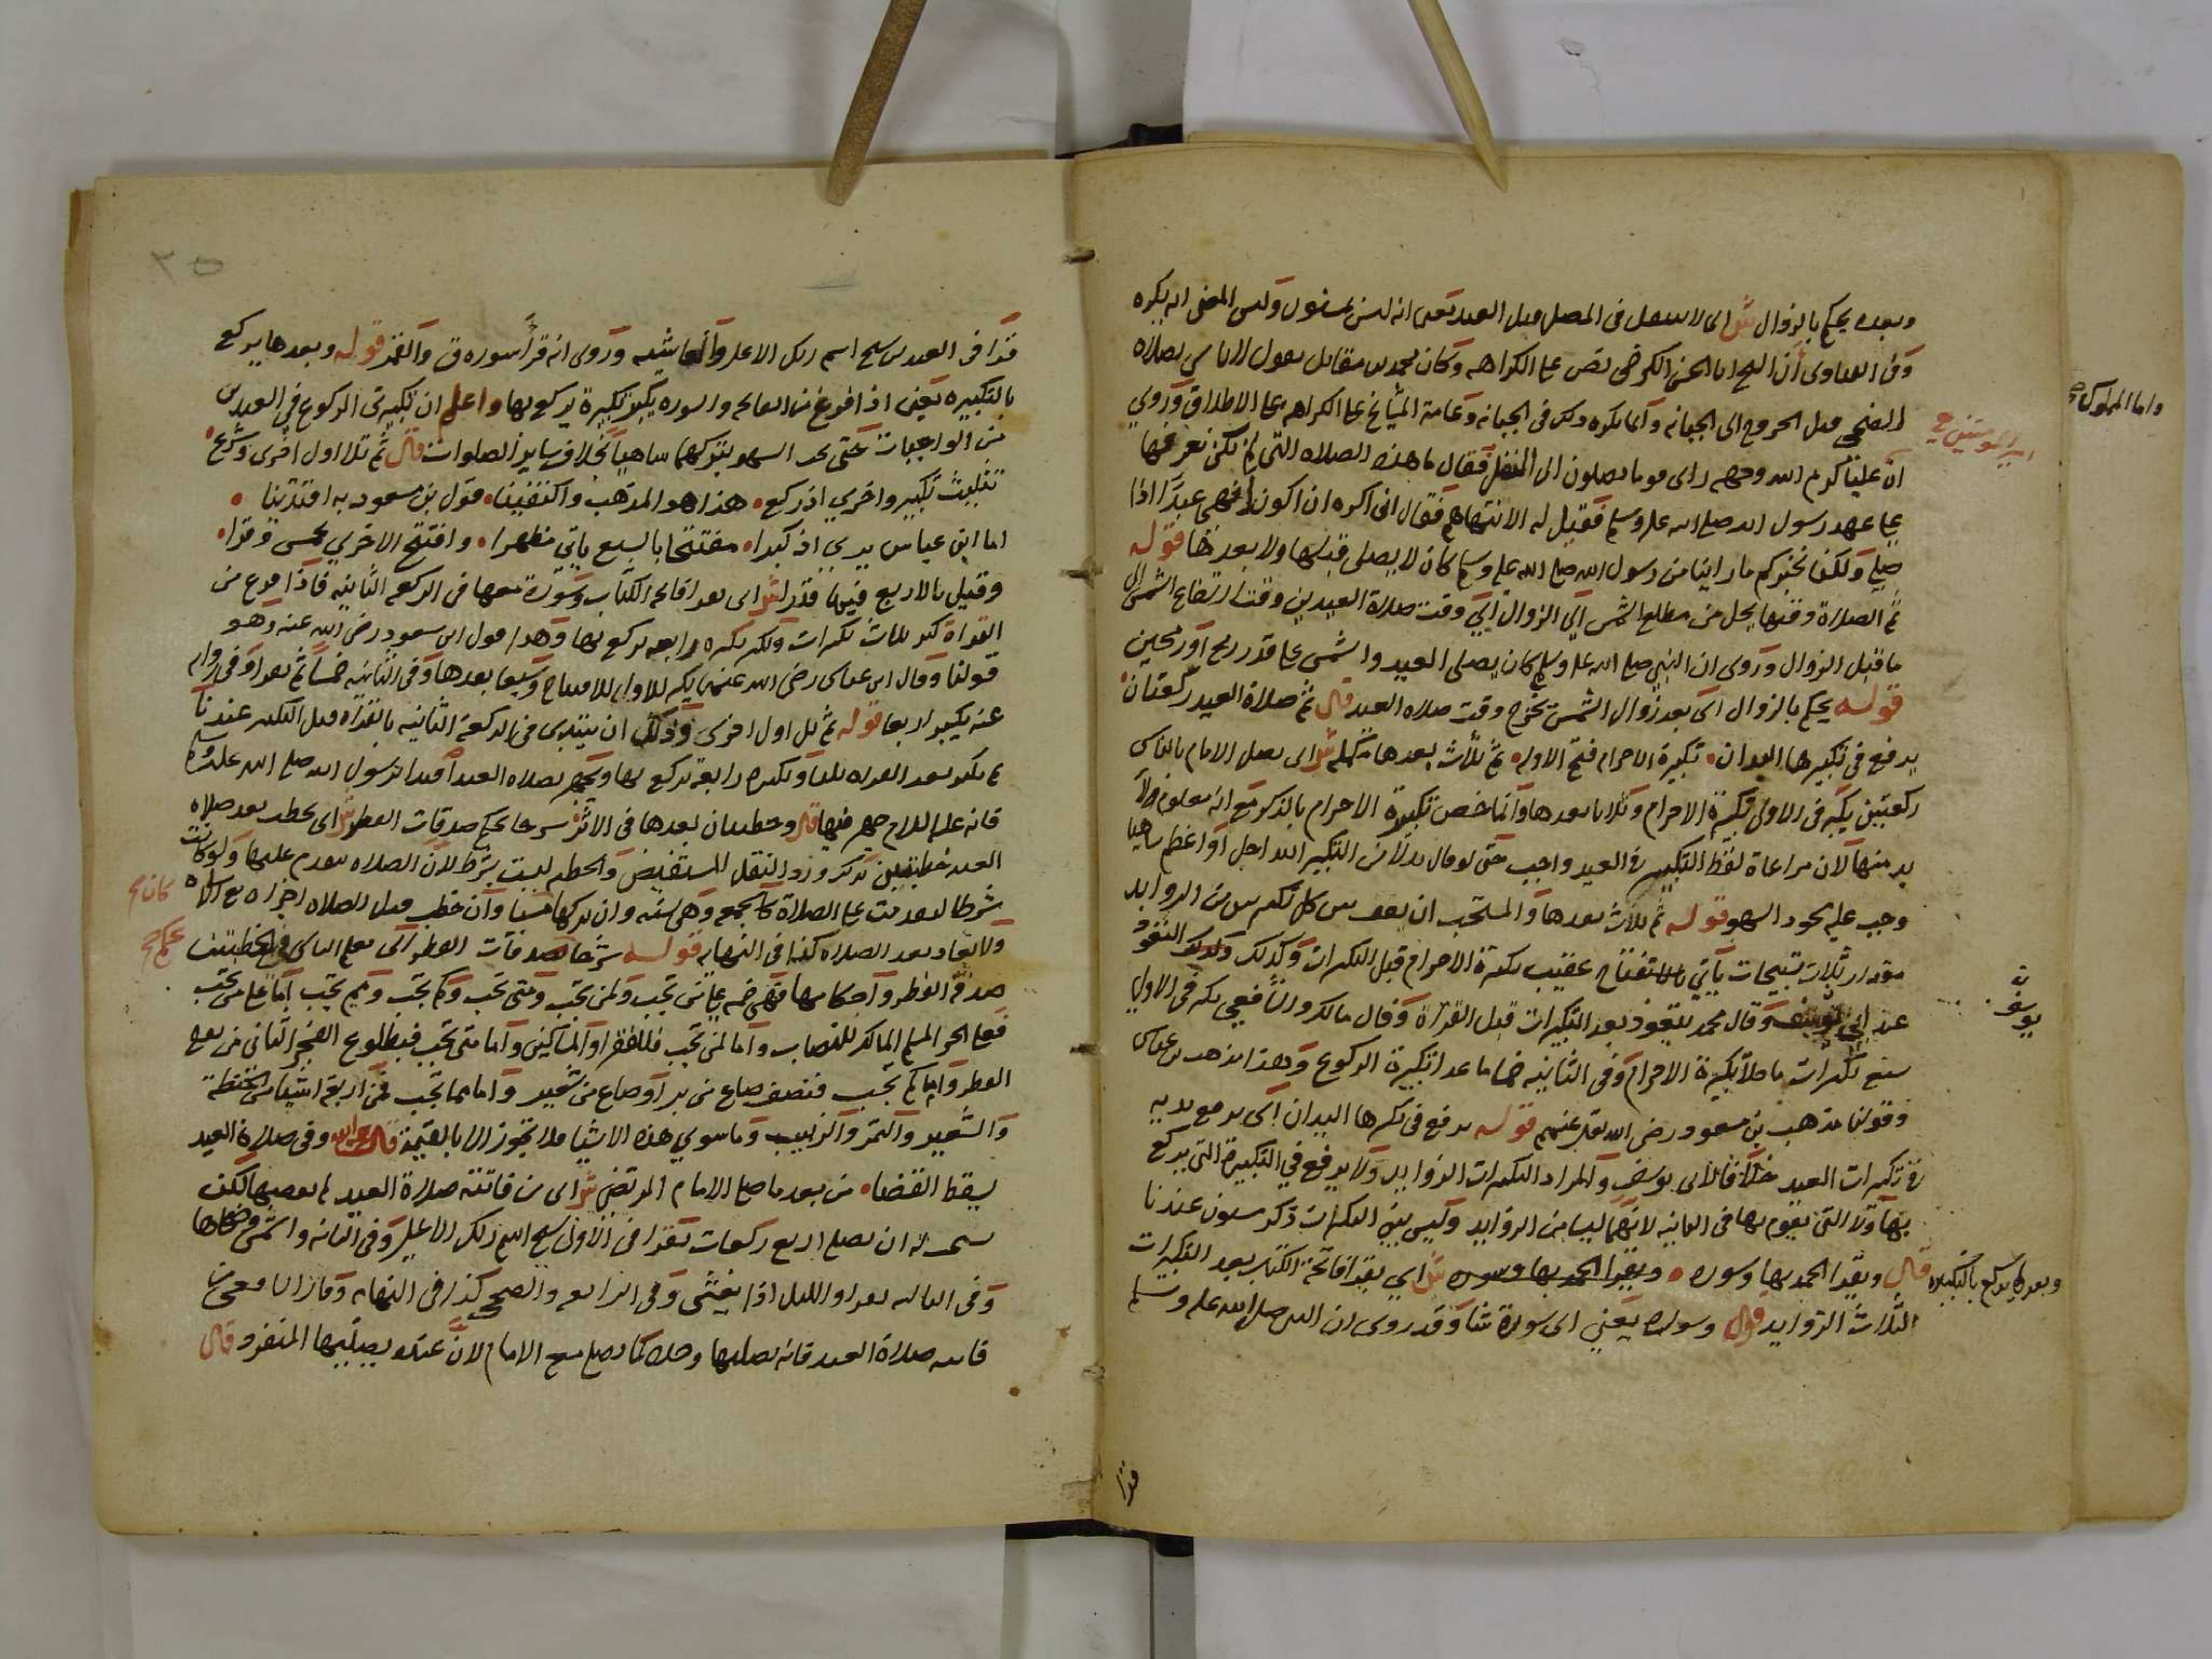 وبعده يحكم بالزوال ش اى لا يتنفل فى المصلى قبل العيد يعنى انه ليس بمسنون وليس المعنى انه يكره
وفى الفتاوى ان الشيخ ابا الحسن الكرخى نص على الكراهه وكان محمد بن مقاتل يقول لا باس بصلاه
الضحى قبل الخروج الى الجبانه وانما يكره ذلك فى الجبانه وعامة المشايخ على الكراهه على الاطلاق وروي
امير المومنين صح
ان عليا كرم الله وجهه راى قوما يصلون الى النفل فقال ما هذه الصلاه التى لم نكن نعرفها
على عهد رسول الله صلى الله عليه وسلم فقيل له الا تنهاهم فقال انى اكره ان اكون انهى عبدا اذا
صلى ولكنا نخبركم ما راينا من رسول الله صلى الله عليه وسلم كان لا يصلى قبلها ولا بعدها قوله
ثم الصلاة وقتها يحل من مطلع الشمس الى الزوال اي وقت صلاة العيدين وقت ارتفاع الشمس الى
ما قبل الزوال وروى ان النبي صلى الله عليه وسلم كان يصلى العيد والشمس على قدر رمح او رمحين
قوله يحكم بالزوال اى بعد زوال الشمس يخرج وقت صلاه العيد قال ثم صلاة العيد ركعتان
يرفع فى تكبيرها اليدان تكبيرة الاحرام فتح الاوله ثم ثلاث بعدها مكمله ش اى يصلى الامام بالناس
ركعتين يكبر فى الاولى تكبيرة الاحرام وثلاثا بعدها وانما خص تكبيرة الاحرام بالذكر مع انه معلوم ولا
بد منها لان مراعاة لفظ التكبير فى العيد واجب حتى لو قال بدلا من التكبير الله اجل او اعظم ساهيا
وجب عليه سجود السهو قوله ثم ثلاث بعدها والمستحب ان يقف بين كل تكبيرتين من الزوايد
مقدار ثلاث تسبيحات ياتي بالاستفتاح عقيب تكبيرة الاحرام قبل التكبيرات وكذلك التعوذ
عند ابى يوسف وقال محمد يتعوذ بعد التكبيرات قبل القراة وقال مالك والشافعي يكبر فى الاولي
يوسف
سبع تكبيرات ما خلا تكبيرة الاحرام وفى الثانيه خمسا ما عدا تكبيرة الركوع وبهذا مذهب بن عباس
وقولنا مذهب بن مسعود رضى الله تعالى عنهم قوله يرفع فى تكبيرها اليدان اى يرفع يديه
فى تكبيرات العيد خلافا لابى يوسف والمراد التكبيرات الزوايد ولا يرفع في التكبيرة التى يركع
بها ولا التى يقوم بها فى الثانيه لانهما ليسا من الزوايد وليس بين التكبيرات ذكر مسنون عندنا
قال ويقرا الحمد بها وسوره ويقرا الحمد بها وسوره ش اي يقرا فاتحة الكتاب بعد التكبيرات
وبعدها يركع بالتكبيره
الثلاث الزوايد قوله وسوره يعني اى سورة شا وقد روى ان النبى صلى الله عليه وسلم
قرا
واما المملوك
٣٥
قرا فى العيد سبح اسم ربك الاعلى والغاشيه وروى انه قرأ سوره ق والقمر قوله وبعدها يركع
بالتكبيره يعنى اذا فرغ من الفاتحه والسوره يكبر تكبيرة يركع بها واعلم ان تكبيرتى الركوع في العيدين
من الواجبات حتى يجب السهو بتركهما ساهيا بخلاف ساير الصلوات قال ثم تلا اول اخرى وشرع
تثليث تكبير واخري اذ ركع هذا هو المذهب واكتفينا قول بن مسعود به اقتدينا
اما ابن عباس يري اذ كبرا مفتتحا بالسبع ياتي مظهرا وافتتح الاخري بخمس وقرا
وقيل بالاربع فيما قدرا ش اى بعد فاتحه الكتاب وسورة معها فى الركعه الثانيه فاذا فرغ من
القراة كبر ثلاث تكبيرات وتكبيره رابعه يركع بها وهذا قول ابن مسعود رضى الله عنه وهو
قولنا وقال ابن عباس رضى الله عنهما يكبر للاولى للافتتاح وسبعا بعدها وفى الثانيه خمسا ثم يقرا وفى روايه
عنه يكبر اربعا قوله ثم تلى اول اخرى وذلك ان يبتدى فى الركعة الثانيه بالقراه قبل التكبير عندنا
ثم يكبر بعد القراه ثلاثا وتكبيره رابعة يركع بها ويجهر بصلاه العيد اقتدا برسول الله صلى الله عليه وسلم
فانه عليه السلام جهر فيها قال وخطبتان بعدها فى الاثر شرحا يحكم صدقات الفطر ش اى يخطب بعد صلاه
العيد خطبتين بذلك ورد النقل المستفيض والخطبه ليست بشرط لان الصلاه تتقدم عليها ولو كانت
شرطا لقدمت على الصلاة كالجمعه وهى سنه وان تركها مسيا وان خطب قبل الصلاه اجزاه مع الاساه
كان صح
ولا يعاد بعد الصلاه كذا فى النهايه قوله شرحا صدقات الفطر اى يعلم الناس فى الخطبتين
يحكم صح
صدقة الفطر واحكامها وهى خمسه على من تجب ولمن تجب ومتى تجب وكم تجب ومم تجب اما على من تجب
فعلى الحر المسلم المالك للنصاب واما لمن تجب فللفقرا والمساكين واما متى تجب فبطلوع الفجر الثانى من يوم
الفطر واما كم تجب فنصف صاع من بر او صاع من شعير واما مما تجب فمن اربعة اشيا من الحنطة
والشعير والتمر والزبيب وما سوي هذه الاشيا فلا تجوز الا بالقيمة قال رحمه الله وفى صلاة العيد
يسقط القضا من بعد ما صلى الامام المرتضى ش اى من فاتته صلاة العيد لم يقضها لكن
يستحب له ان يصلى اربع ركعات يقرا فى الاولى سبح اسم ربك الاعلى وفى الثانيه والشمس وضحاها
وفى الثالثه يقرا والليل اذا يغشى وفى الرابعه والضحى كذا فى النهايه وقال الشافعى من
فاتته صلاة العيد فانه يصليها وحده كما يصلى مع الامام لان عنده يصليها المنفرد قال